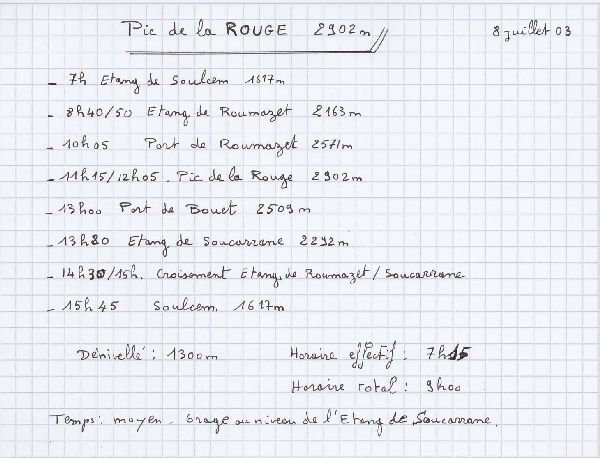 Pic de la ROUGE 2902m 8 juillet 03
- 7h Etang de Soulcem 1617m
- 8h40/50 Etang de Roumazet 2163m
- 10h05 Port de Roumazet 2571m
- 11h15/12h05. Pic de la Rouge 2902m
- 13h00 Port de Bouet 2509m
- 13h20 Etang de Soucarrane 2292m
- 14h30/15h. Croisement Etang de Roumazet/Soucarrane
- 15h45 Soulcem. 1617m
Dénivellé: 1300m Horaire effectif: 7h15
Horaire total: 9h00
Temps: moyen. Orage au niveau de l'Etang de Soucarrane.